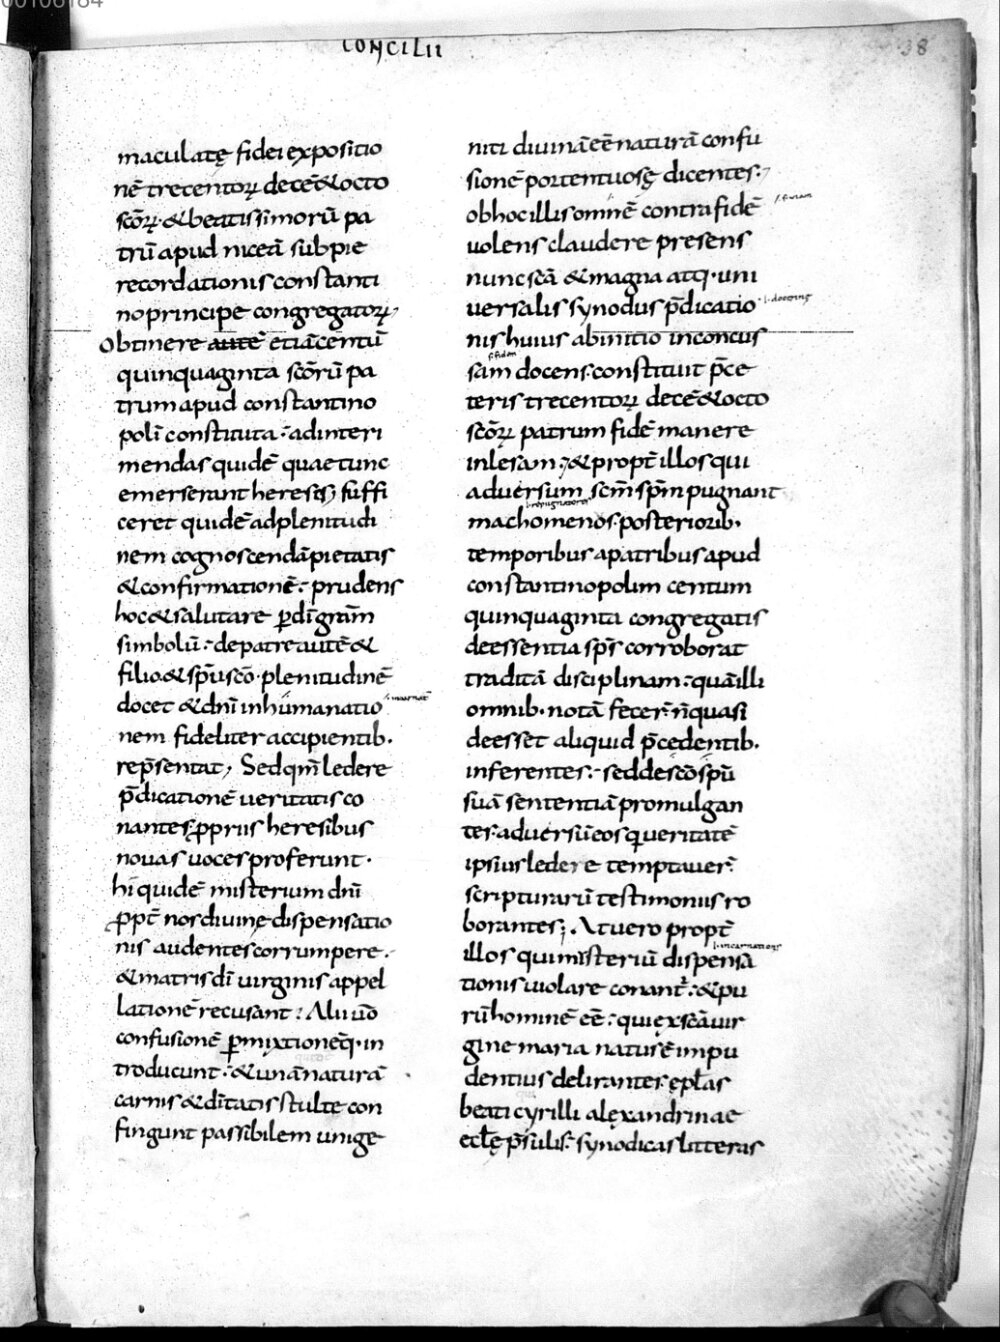 CONCILII
38
maculatę fidei expositio
nē trecentoꝝ decē & octo
scōꝝ & beatissimorū pa
trū apud niceā sub pie
recordationis constanti
no principe congregatoꝝ
Obtinere autē etiā centū
quinquaginta scōrū pa
trum apud constantino
poli constituta: ad interi
mendas quidē quae tunc
emerserant hereses, suffi
ceret quidē ad plenitudi
nem cognoscendā pietatis
& confirmationē: prudens
hoc & salutare ꝑ dī gratiā
simbolū: de patre autē &
filio & spū scō plenitudinē
docet & dnī inhumanatio
nem fideliter accipientib·
repsentat, Sed qm̄ ledere
p̄dicationē ueritatis co
nantes ꝓpriis heresibus
nouas uoces proferunt·
hi quidē misterium dnī
ꝓpt̄ nos diuinę dispensatio
nis audentes corrumpere·
& matris dī uirginis appel
lationē recusant: Alii uō
confusionē ꝑmixtionēq· in
troducunt: & unā naturā
carnis & dītatis stulte con
fingunt passibilem unige
niti diuinā eē naturā confu
sionē portentuosę dicentes:,
ob hoc illis omnē contra fidē
uolens claudere presens
nunc scā & magna atq· uni
uersalis synodus p̄dicatio
nis huius ab initio inconcus
s. fidem
sam docens: constituit p̄ce
teris trecentoꝝ decē & octo
scōꝝ patrum fidē manere
inlesam:, & propt̄ illos qui
aduersum scm̄ spm̄ pugnant
machomenos posteriorib·
temporibus a patribus apud
constantinopolim centum
quinquaginta congregatis
de essentia sps̄ corroborat
traditā disciplinam: quā illi
omnib· notā fecer̄ n̄ quasi
deesset aliquid p̄cedentib·
inferentes: sed de scō spū
suā sententiā promulgan
tes: aduersū eos q ueritatē
ipsius ledere temptauer̄
scripturarū testimoniis ro
borantes;. At uero propt̄
l. incarnationis
illos qui misteriū dispensā
tionis uiolare conant̄: & pu
rū hominē eē: qui ex scā uir
gine maria natus ē impu
dentius delirantes: epl̄as
beati cyrilli alexandrinae
eccl̄ę p̄sulis: synodicas litteras